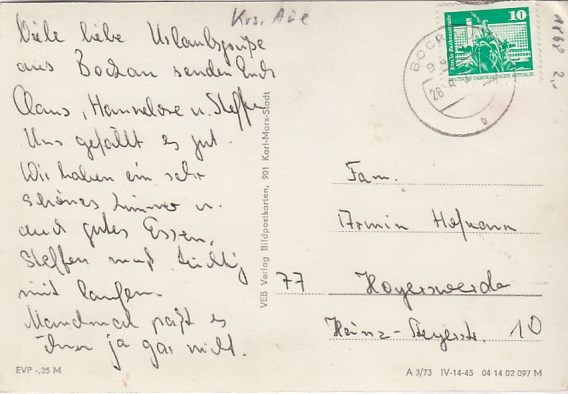 Krs. Aue
Viele liebe Urlaubsgrüße
aus Bockau senden Euch
Claus, Hannelore u. Steffen
Uns gefällt es gut.
Wir haben ein sehr
schönes Zimmer u.
auch gutes Essen,
Steffen muß tüchtig
mit laufen.
Manchmal paßt es
ihm ja gar nicht.
EVP -,25 M
VEB Verlag Bildpostkarten, 901 Karl-Marx-Stadt
10
BOCK
28
1868 2,-
Fam.
Armin Hofmann
77 Hoyerswerda
Heinz- 10
A 3/73 IV-14-45 04 14 02 097 M